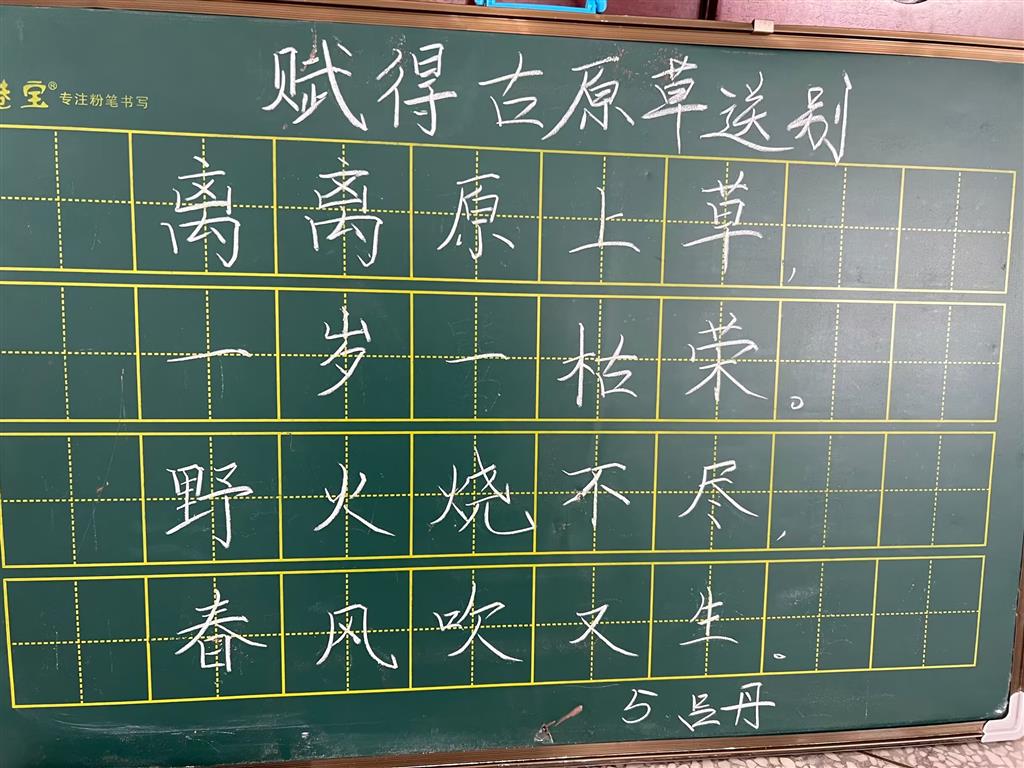 赋得古原草送别
宝® 专注粉笔书写
离离原上草,
一岁一枯荣。
野火烧不尽,
春风吹又生。
5. 吕丹